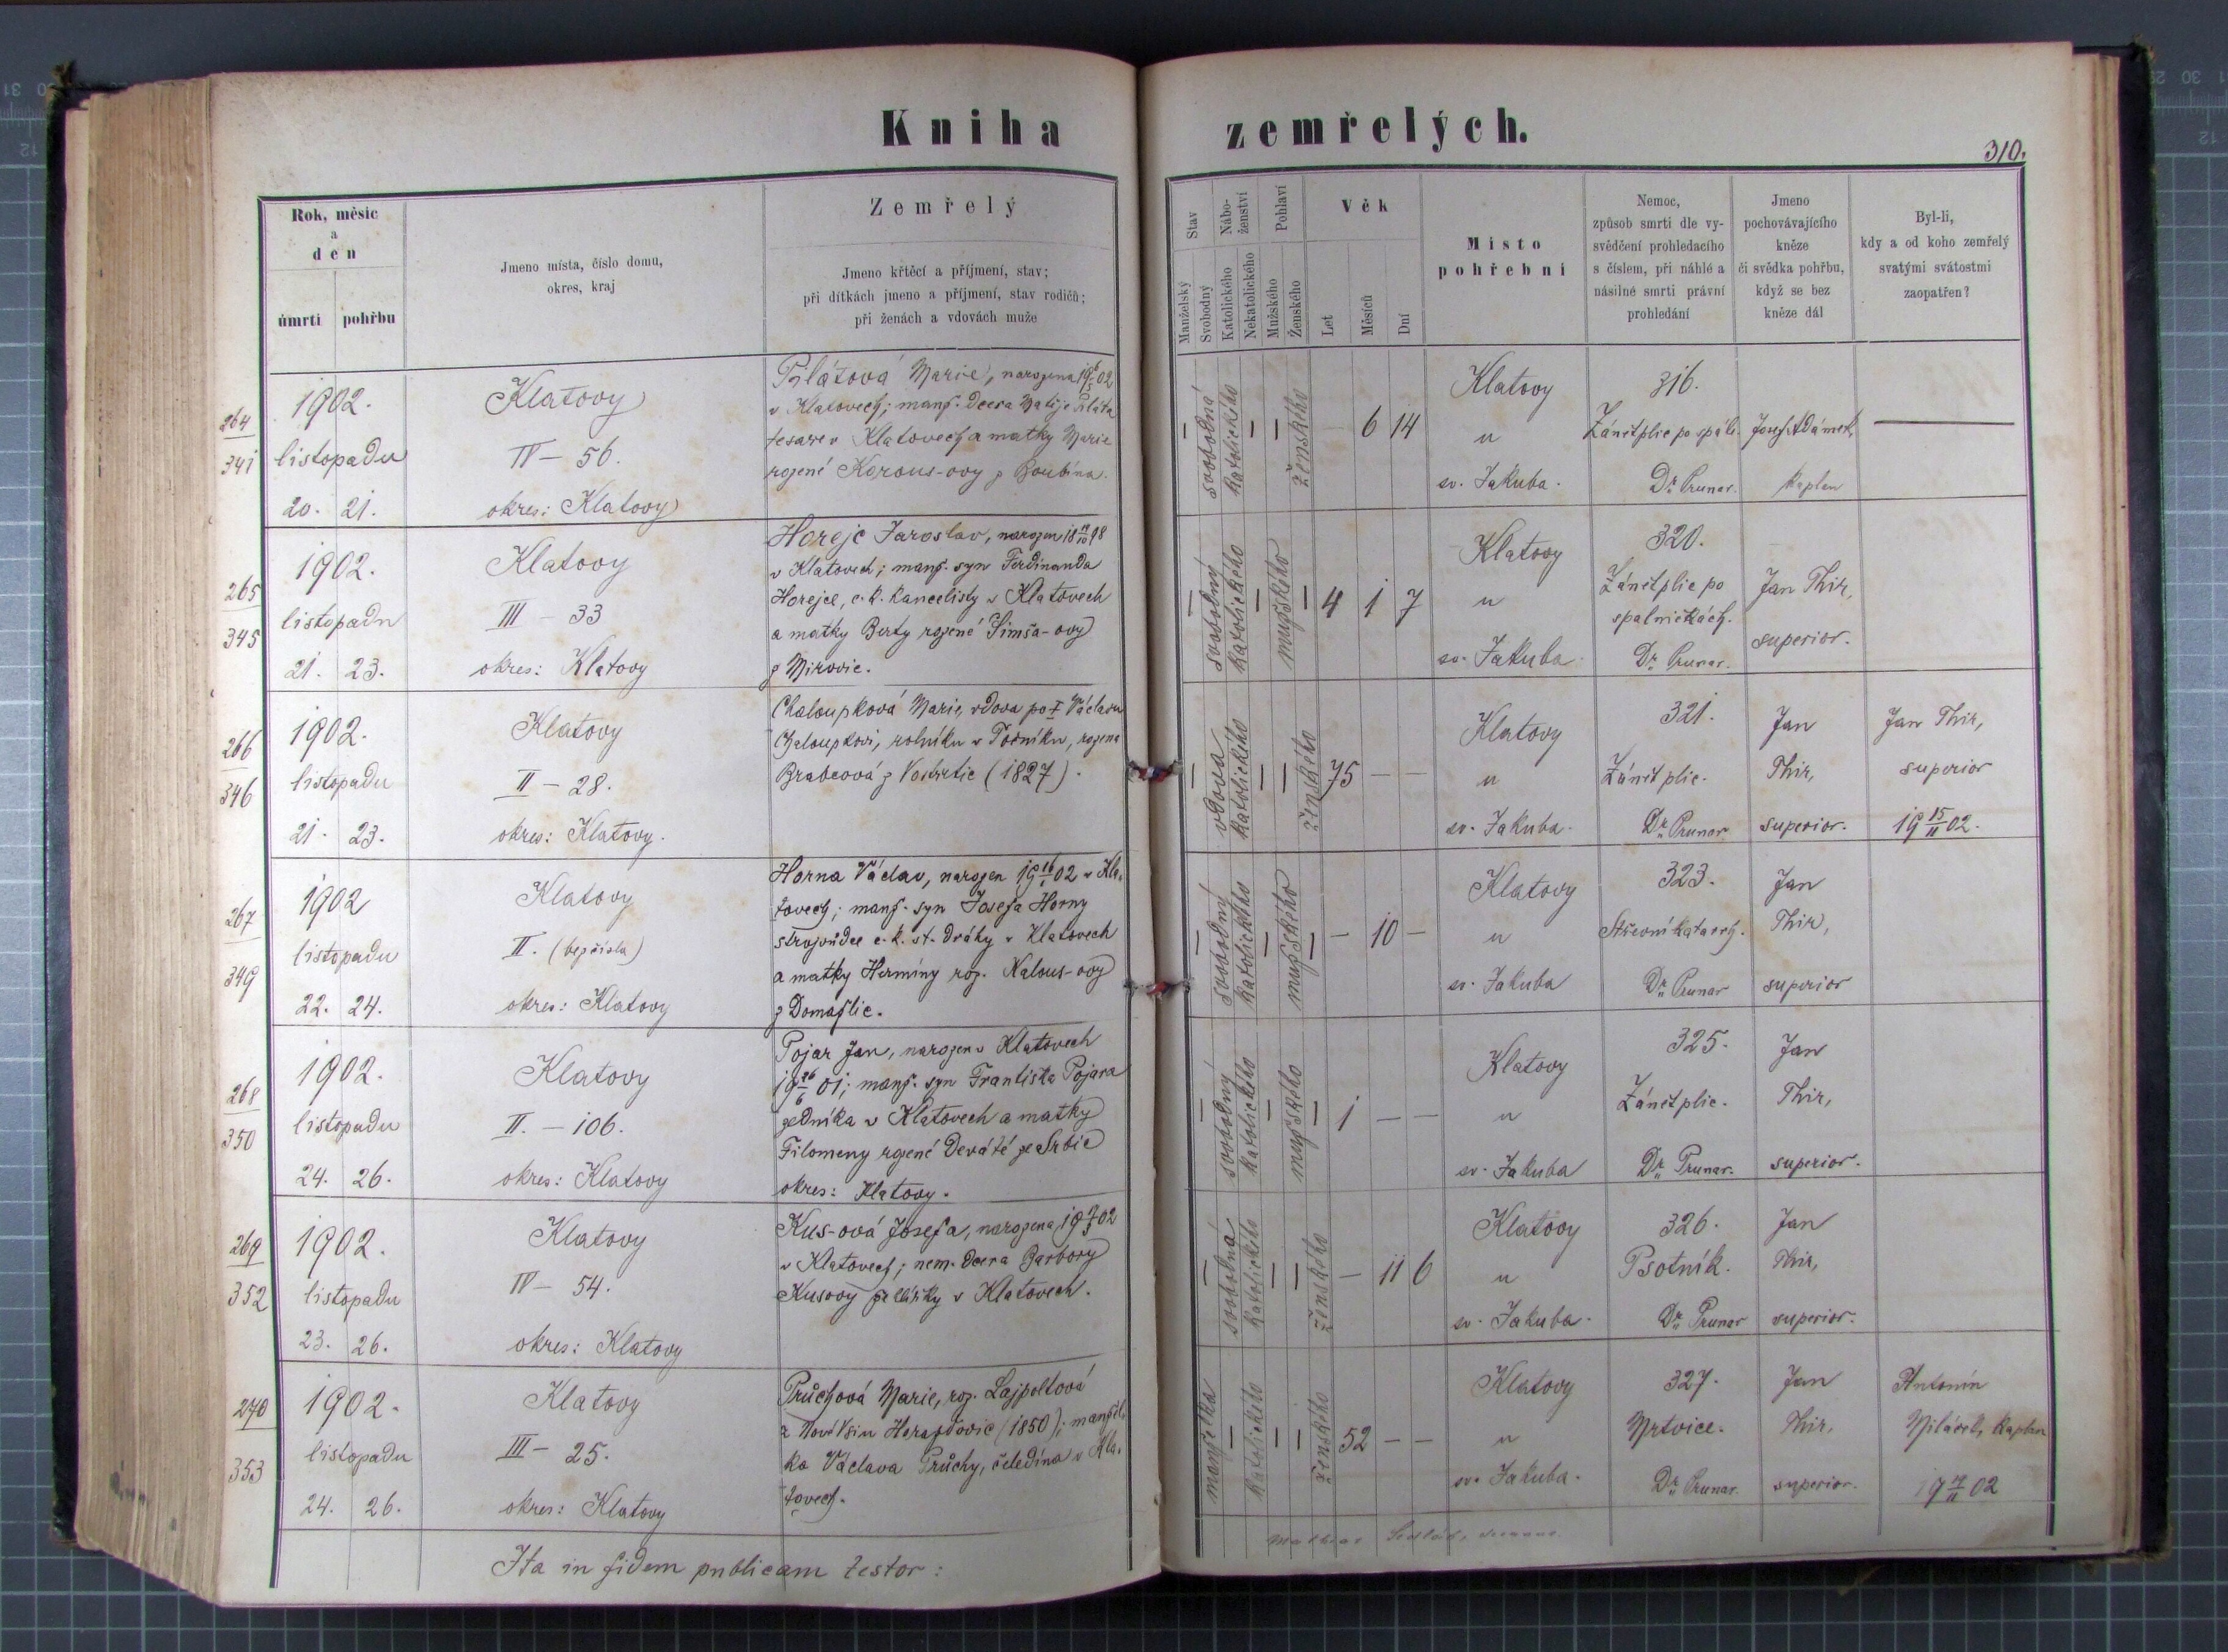 Kniha zemřelých.
310.
Rok, měsíc
a
den
úmrtí
pohřbu
Jmeno místa, číslo domu,
okres, kraj
Zemřelý
Jmeno křtěcí a příjmení, stav;
při dítkách jmeno a příjmení, stav rodičů;
při ženách a vdovách muže
Stav
Manželský
Svobodný
Nábo-
ženství
Katolického
Nekatolického
Pohlaví
Mužského
Ženského
Věk
Let
Měsíců
Dní
Místo
pohřební
Nemoc,
způsob smrti dle vy-
svědčení prohledacího
s číslem, při náhlé a
násilné smrti právní
prohledání
Jmeno
pochovávajícího
kněze
či svědka pohřbu,
když se bez
kněze dál
Byl-li,
kdy a od koho zemřelý
svatými svátostmi
zaopatřen?
264
341
1902.
listopadu
20. 21.
Klatovy
IV – 56.
okres: Klatovy
Pilátová Marie, narozena 19 6/5 02
v Klatovech; manž. dcera Matěje Piláta
tesaře v Klatovech a matky Marie
rozené Korous-ovy z Boubína.
svobodná
katolického
ženského
6 14
Klatovy
u
sv. Jakuba.
316.
Zánět plic po spál.
Dr. Prunar.
Josef Adámek,
kaplan
265
345
1902.
listopadu
21. 23.
Klatovy
III – 33
okres: Klatovy
Horejc Jaroslav, narozen 18 14/10 98
v Klatovech; manž. syn Ferdinanda
Horejce, c. k. kancelisty v Klatovech
a matky Berty rozené Šimša-ovy
z Mirovic.
svobodný
katolického
mužského
4 1 7
Klatovy
u
sv. Jakuba.
320.
Zánět plic po
spalničkách.
Dr. Prunar.
Jan Thir,
superior.
266
346
1902.
listopadu
21. 23.
Klatovy
II – 28.
okres: Klatovy.
Chaloupková Marie, vdova po † Václavu
Chaloupkovi, rolníku v Točníku, rozená
Brabcová z Vostrtic (1827).
vdova
katolického
ženského
75 – –
Klatovy
u
sv. Jakuba.
321.
Zánět plic.
Dr. Prunar
Jan
Thir,
superior.
Jan Thir,
superior
19 15/11 02.
267
349
1902
listopadu
22. 24.
Klatovy
II. (bez čísla)
okres: Klatovy
Horna Václav, narozen 19 16/1 02 v Kla-
tovech; manž. syn Josefa Horny
strojvůdce c. k. st. dráhy v Klatovech
a matky Hermíny roz. Nalous-ovy
z Domažlic.
svobodný
katolického
mužského
– 10 –
Klatovy
u
sv. Jakuba
323.
Střevní katarrh.
Dr. Prunar
Jan
Thir,
superior
268
350
1902.
listopadu
24. 26.
Klatovy
II. – 106.
okres: Klatovy
Pojar Jan, narozen v Klatovech
19 26/6 01; manž. syn Františka Pojara
zedníka v Klatovech a matky
Filomeny rozené Deváté ze Srbic
okres: Klatovy.
svobodný
katolického
mužského
1 – –
Klatovy
u
sv. Jakuba
325.
Zánět plic.
Dr. Prunar.
Jan
Thir,
superior.
269
352
1902.
listopadu
23. 26.
Klatovy
IV – 54.
okres: Klatovy
Kus-ová Josefa, narozena 19 02
v Klatovech; nem. dcera Barbory
Kusovy v Klatovech.
svobodná
katolického
ženského
– 11 6
Klatovy
u
sv. Jakuba.
326.
Psotník.
Dr. Prunar
Jan
Thir,
superior.
270
353
1902.
listopadu
24. 26.
Klatovy
III – 25.
okres: Klatovy
Průchová Marie, roz. Lajpoltová
z Nové Vsi u Horažďovic (1850); manžel-
ka Václava Průchy, čeledína v Kla-
tovech.
manželka
katolického
ženského
52 – –
Klatovy
u
sv. Jakuba.
327.
Mrtvice.
Dr. Prunar.
Jan
Thir,
superior.
Antonín
kaplan
02
Ita in fidem publicam testor:
Mathias